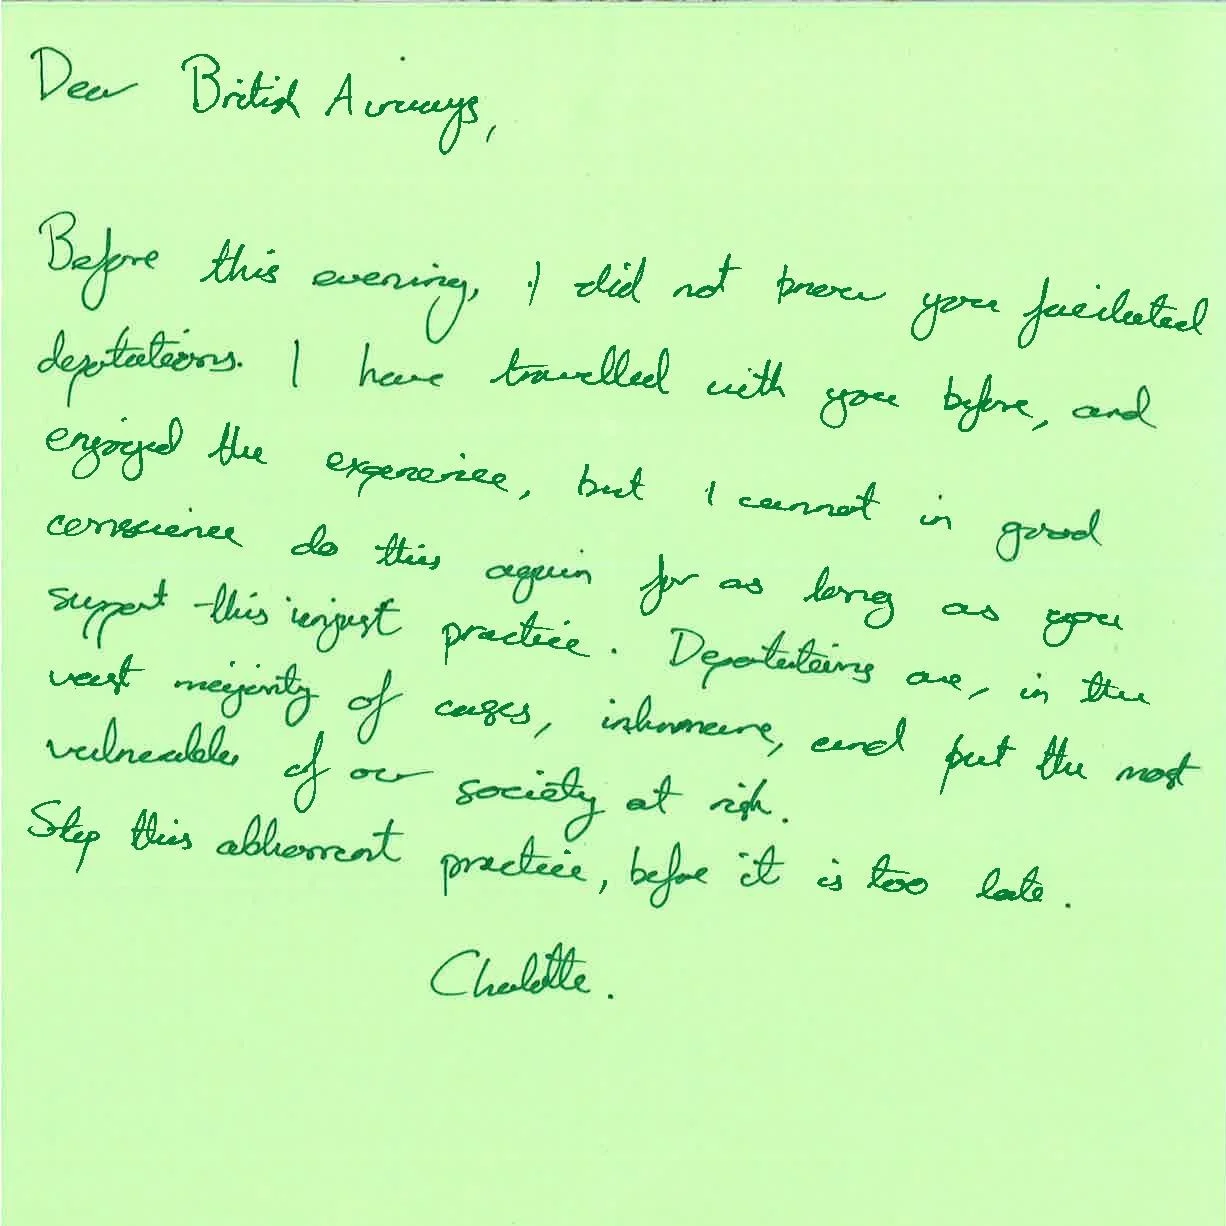 Dear British Airways,
Before this evening, I did not know you facilitated
deportations. I have travelled with you before, and
enjoyed the experience, but I cannot in good
conscience do this again for as long as you
support this unjust practice. Deportations are, in the
vast majority of cases, inhumane, and put the most
vulnerable of our society at risk.
Stop this abhorrent practice, before it is too late.
Charlotte.